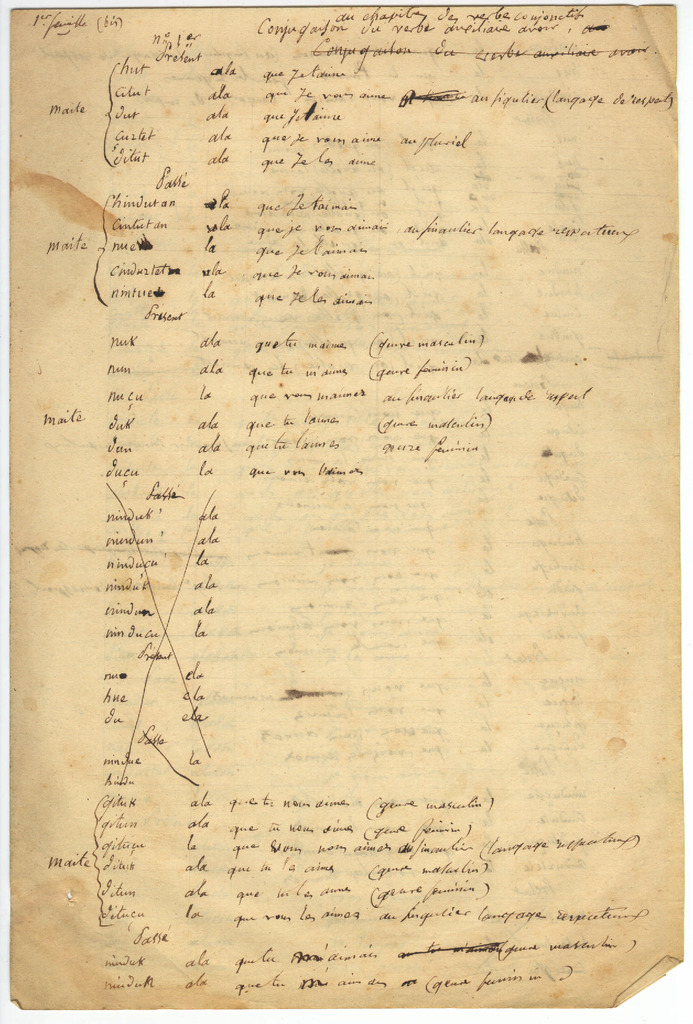 1er feuille (bis)
du chapitre des verbes conjonctifs
Conjugaison du verbe auxiliaire avoir,
Conjugaison du verbe auxiliaire avoir.
n° 1er
Présent
hut ala que Je t'aime
citut ala que Je vous aime au singulier (langage de respect)
maite
dut ala que Je l'aime
cuztet ala que Je vous aime au pluriel
ditut ala que Je les aime
Passé
hindutan ala que Je t'aimais
cintutan ala que je vous aimais au singulier langage respectueux
maite nue la que Je l'aimais
cinduztet ala que Je vous aimais
nintue la que Je les aimais
Présent
nuk ala que tu m'aimes (genre masculin)
nun ala que tu m'aimes (genre feminin)
nuçu la que vous m'aimez au singulier langage de respect
maite duk ala que tu l'aimes (genre masculin)
dun ala que tu l'aimes genre feminin
duçu la que vous l'aimez
Passé
ninduk ala
nindun ala
ninduçu la
ninduk ala
nindun ala
ninduçu la
Présent
nue ela
hue ela
du ela
Passé
nindue la
hindu
gituk ala que tu nous aimes (genre masculin)
gitun ala que tu nous aimes (genre feminin)
gituçu la que vous nous aimez au singulier (langage respectueux)
maite dituk ala que tu les aimes (genre masculin)
ditun ala que tu les aimes (genre feminin)
dituçu la que vous les aimez au singulier langage respectueux
Passé
ninduk ala que tu m'aimais (genre masculin)
ninduk ala que tu m'aimais (genre feminin)